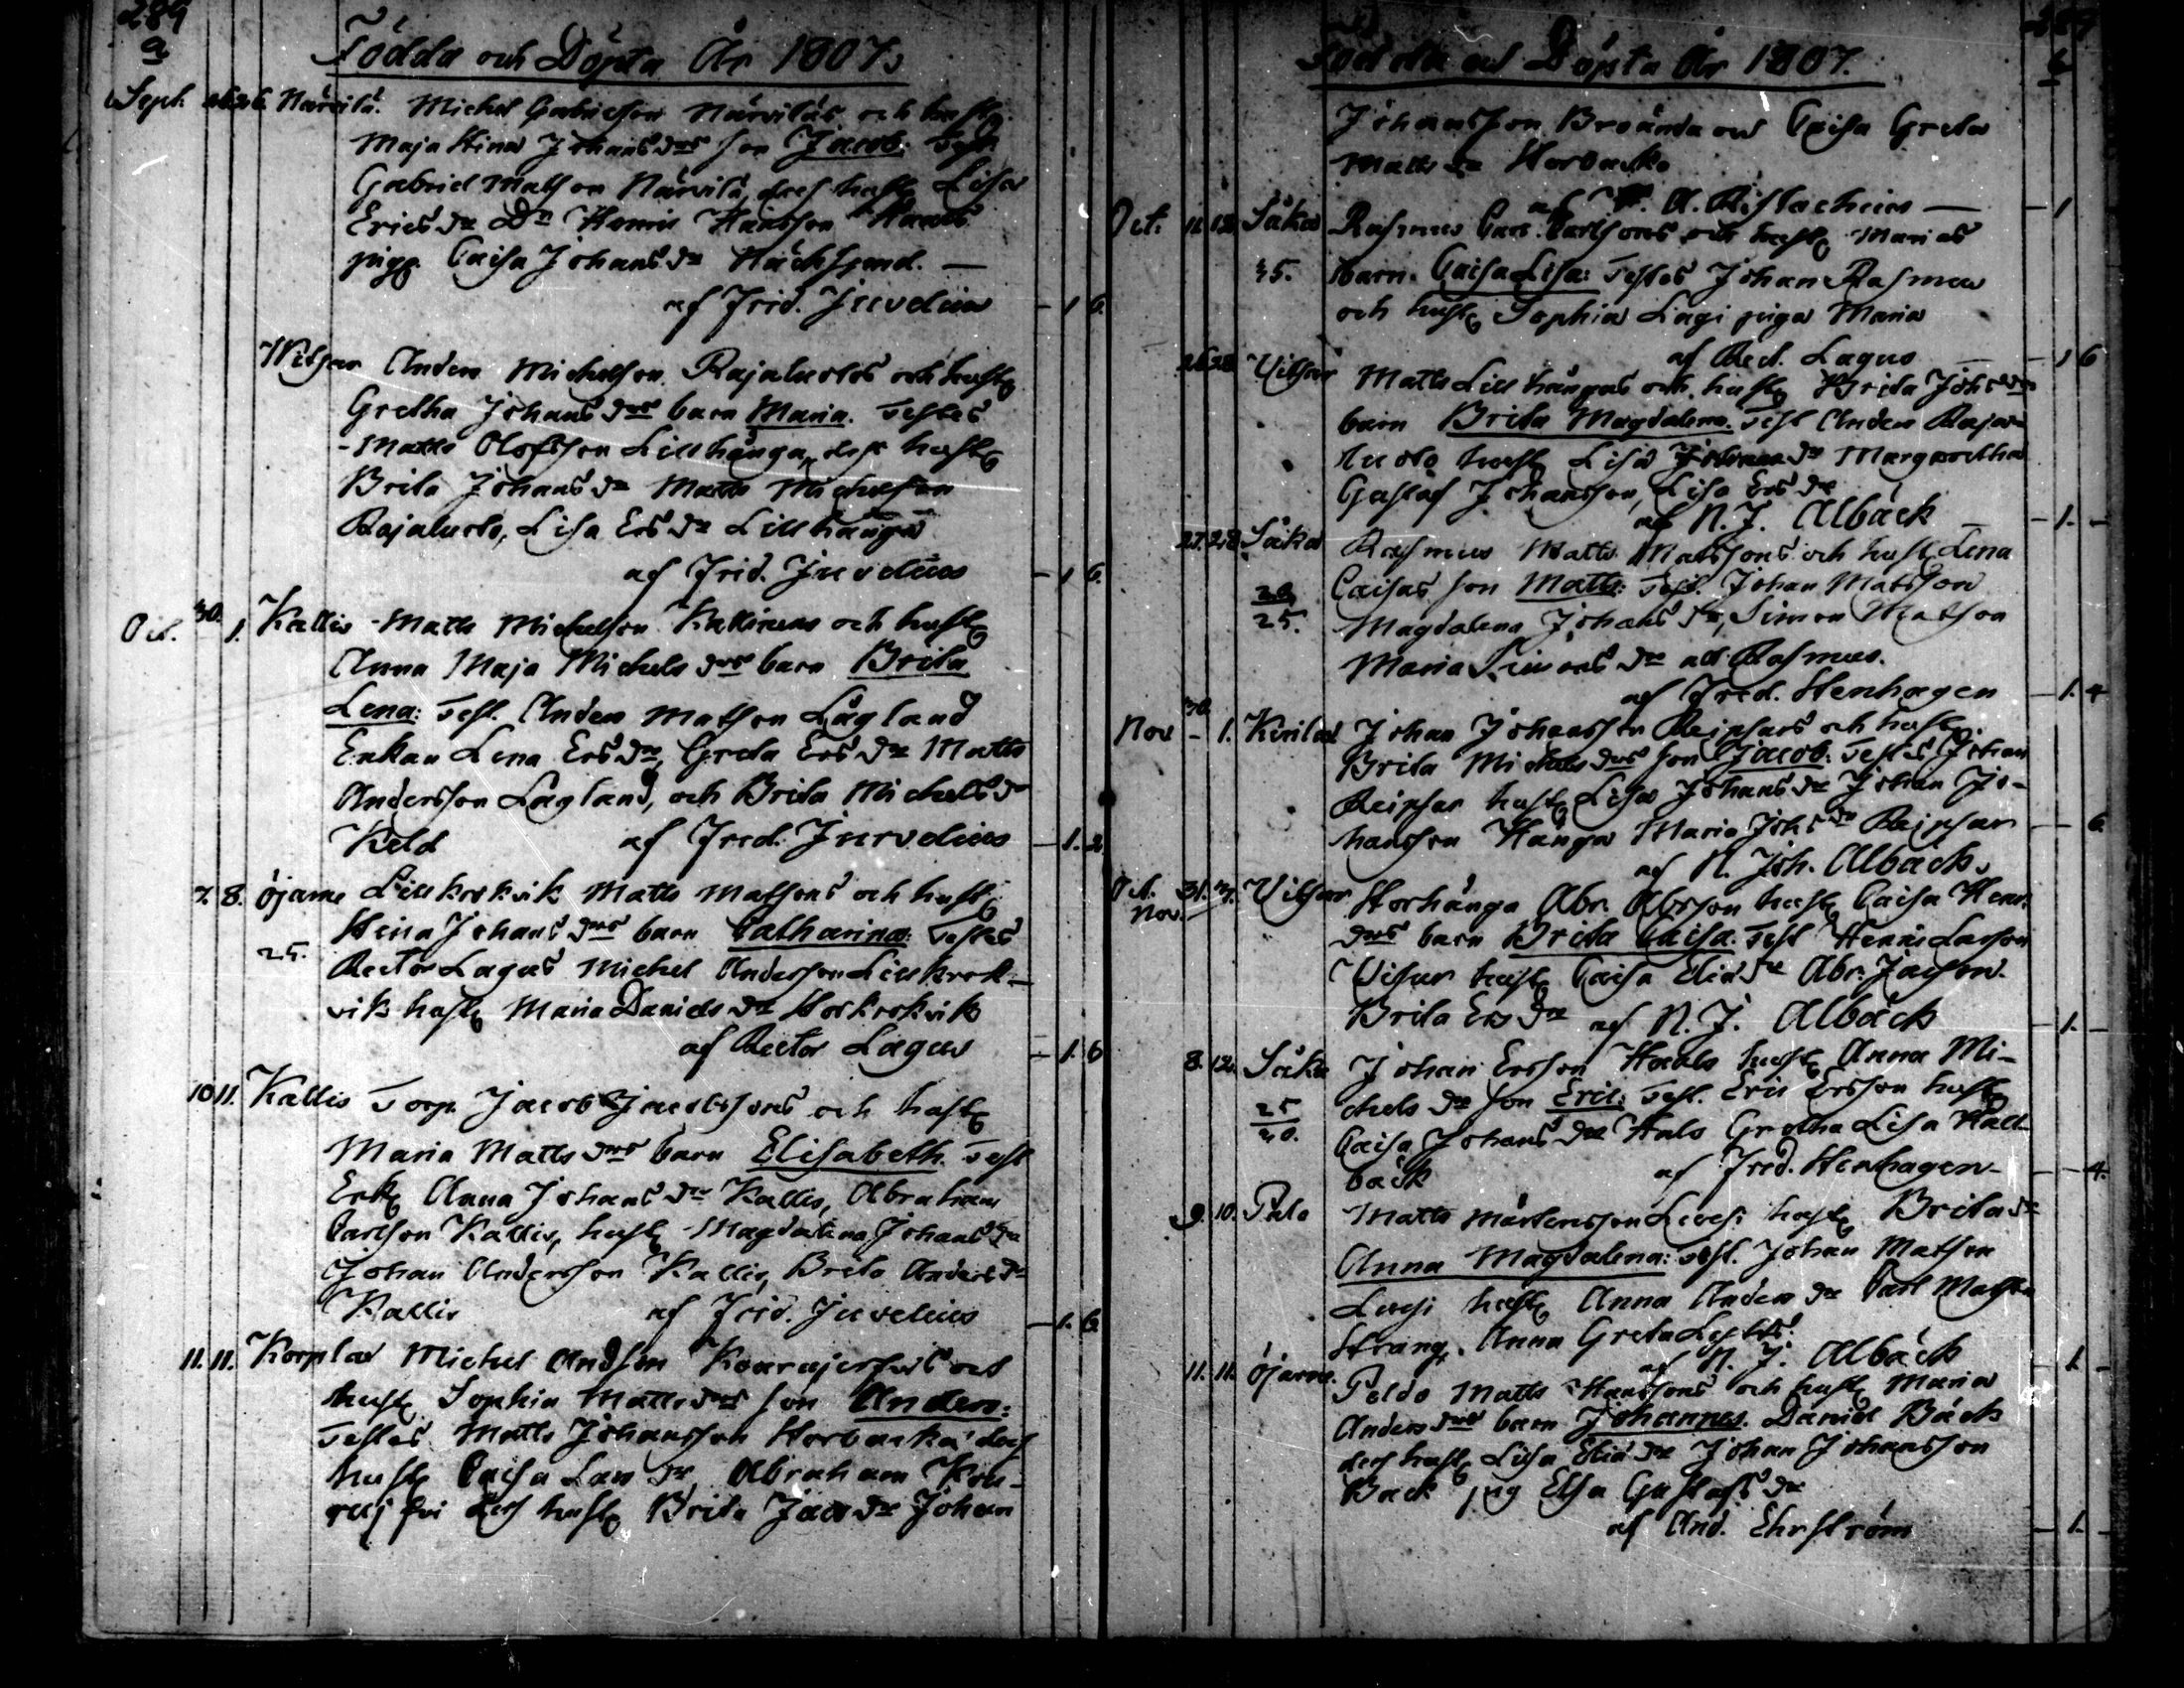 289
a
Födda och Döpta År 1807.
Sept. 26 26 Närvilä. Michel Gabrielson Närviläs och hust.
Maja Stina Johans drs son Jacob: Test.
Gabriel Matson Närvilä, dess hust. Lisa
Erics dr Dr Henric Hansson
pig. Caisa Johans dr
af Frid. Juvelius — 1 6.
Witsar Anders Michelson Rajalustos och hust.
Gretha Johans drs barn Maria. Testes
Matts Olofsson Lillhånga, dess hust.
Brita Johans dr Matts Michelson
Rajalusto, Lisa Ers dr Lillhånga
af Frid. Juvelius — 1 6.
Oct. 30. 1. Kallis Matts Michelson Kallinens och hust.
Anna Maja Michels drs barn Brita
Lena: Test. Anders Matson Lågland
Enkan Lena Ers dr, Greta Ers dr Matts
Andersson Lågland, och Brita Michels dr
Keld af Fred. Juvelius — 1. 2.
7. 8. Öjame Lillkrokvik Matts Matsons och hust.
Stina Johans drs barn Catharina: Testes
25. Rector Lagus Michel Andersson Lillkrok-
vik hust. Maria Daniels dr Storkrokvik
af Rector Lagus — 1. 6
10 11. Kallis Torp. Jacob Jacobssons och hust.
Maria Matts drs barn Elisabeth. Test
Enk. Anna Johans dr Kallis, Abraham
Carlson Kallis, hust. Magdalena Johans dr
Johan Andersson Kallis, Brita Anders dr
Kallis af Frid. Juvelius — 1. 6.
11. 11. Korplax Michel Andson och
hust. Sophia Matts drs son Anders:
Testes. Matts Johansson Storbacka dess
hust. Caisa Lars dr Abraham Kou-
dess hust. Brita Jacs dr Johan
289
b
Födda och Döpta År 1807.
Johansson Broända och Caisa Greta
Matts dr Storbacka
af A. Ristachius — 1
Oct. 11. 12. Såka Rasmus Carl Carlsons och hust. Marias
35. barn. Caisa Lisa: Testes Johan Rasmus
och hust. Sophia Lagi piga Maria
af Rect. Lagus — 1 6
26 28 Vitsar Matts Lillhångas och hust. Brita Johs drs
barn Brita Magdalena. Test Anders Raja-
lusto hust. Lisa Johans dr Margaretha
Gustaf Johansson, Lisa Ers dr
af N. J. Albäck — 1. -
27. 28. Såka Rasmus Matts Matssons och hust. Lena
Caisas son Matts: Test. Johan Matsson
25. Magdalena Johans dr, Simon Matson
Maria Simons dr all Rasmus.
af Fred. Stenhagen — 1. 4
Nov 30 - 1. Kirilax Johan Johansson Reipsars och hust.
Brita Michels drs son Jacob: Testes Johan
Reipsar hust. Lisa Johans dr Johan Jo-
hansson Hanga Maria Johs dr Reipsar — 6
af N. Joh. Albäck.
Oct. 31. Vitsar Storhånga Abr. Abrson hust. Caisa Henr.
Nov. drs barn Brita Caisa. Test Henric Larson
Vitsar hust. Caisa Elias dr Abr. Jacson.
Brita Ers dr af N. J. Albäck — 1. -
8. 12. Såka Johan Ersson Hauts hust. Anna Mi-
25 chels dr son Eric: Test. Eric Ersson hust.
Caisa Johans dr Gretha Lisa Hall-
bäck af Fred. Stenhagen — 4.
9. 10. Palo Matts Mårtensson Levesi hust. Brita dr
Anna Magdalena: Test. Johan Matson
Levesi hust. Anna Anders dr Carl Matson
Strang, Anna Greta
af N. J. Albäck — 1. -
11. 11. Öjame. Peldo Matts Hanssons och hust. Maria
Anders drs barn Johannes. Daniel Bäck
dess hust. Lisa Elia dr Johan Johansson
Back pig Elsa Gustafs dr
af And. Ehrström — 1. -